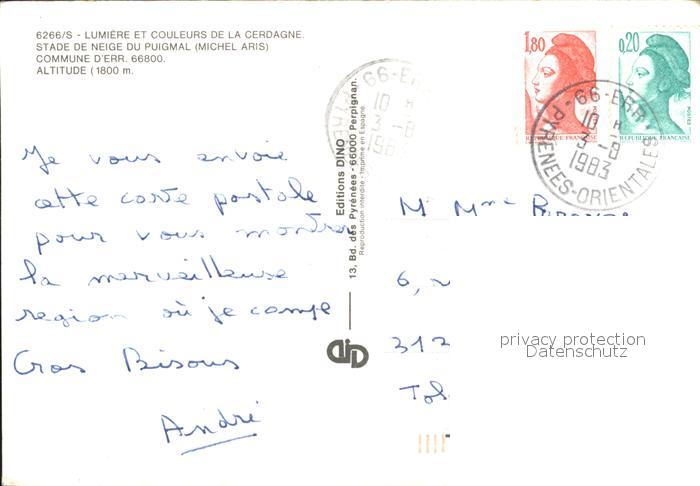 6266/S - LUMIÈRE ET COULEURS DE LA CERDAGNE.
STADE DE NEIGE DU PUIGMAL (MICHEL ARIS)
COMMUNE D'ERR. 66800.
ALTITUDE (1800 m.
Je vous envoie
cette carte postale
pour vous montrer
la merveilleuse
region où je campe
Gros Bisous
André
Editions DINO
13, Bd. des Pyrénées - 66000 Perpignan.
Reproduction interdite - Imprimé en Espagne
1,80
REPUBLIQUE FRANÇAISE
0,20
REPUBLIQUE FRANÇAISE
POSTES
66-ERR
10 H
3-8
198
PYRE
66-ERR
10 H
3-8
1983
PYRENEES-ORIENTALES
M Mme
6,
312
privacy protection
Datenschutz